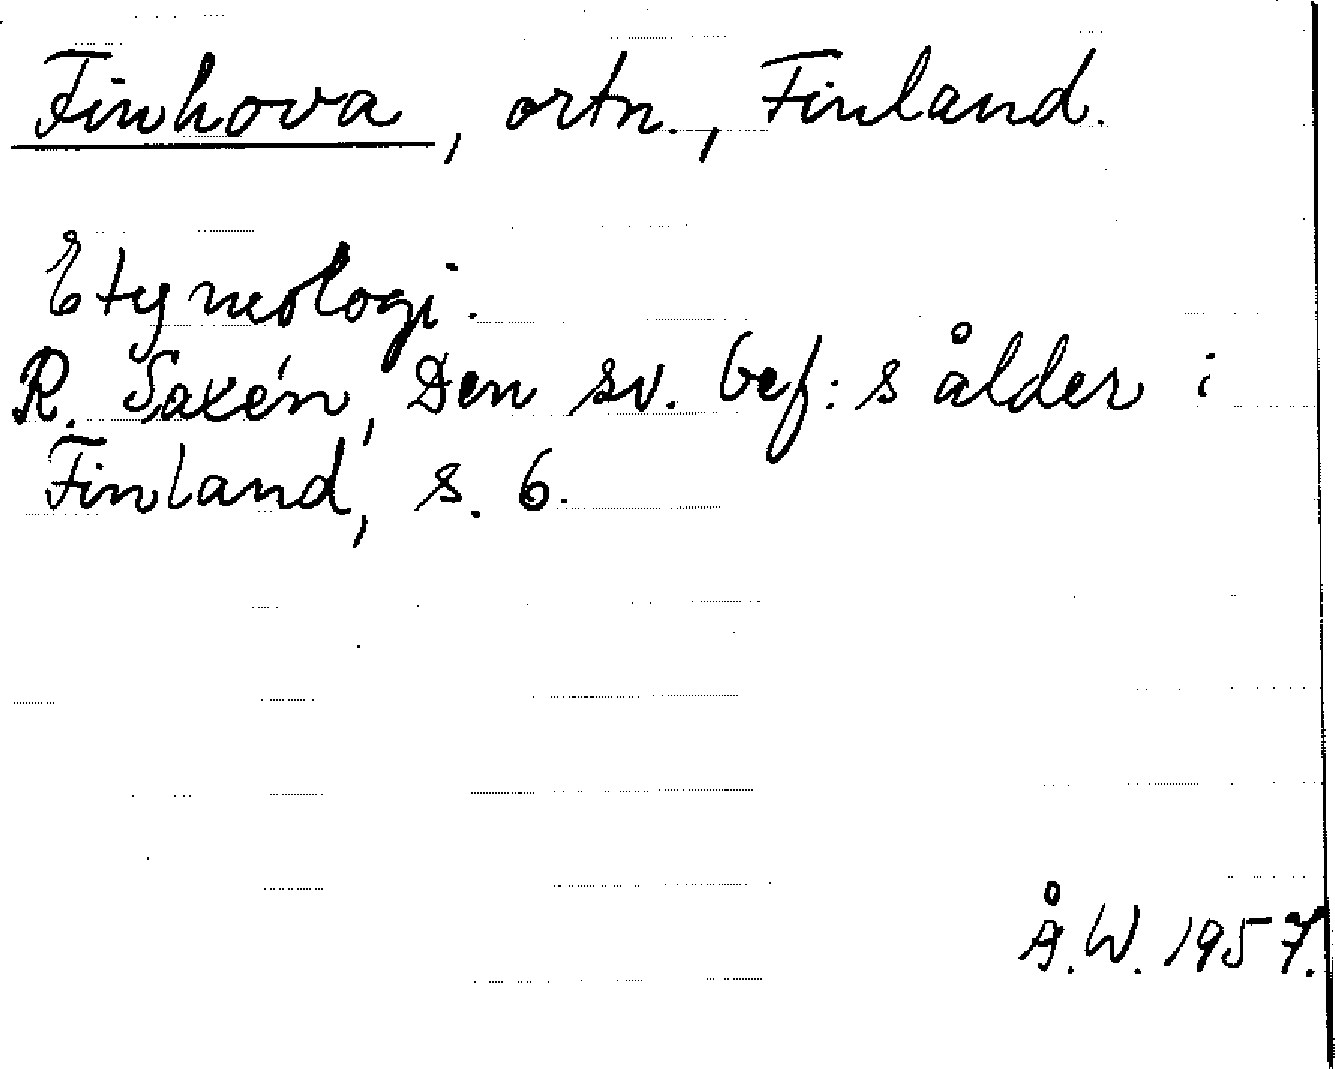 Finhova, ortn., Finland.
Etymologi.
R. Saxén, Den sv. bef:s ålder i
Finland, s. 6.
Å.W. 1957.